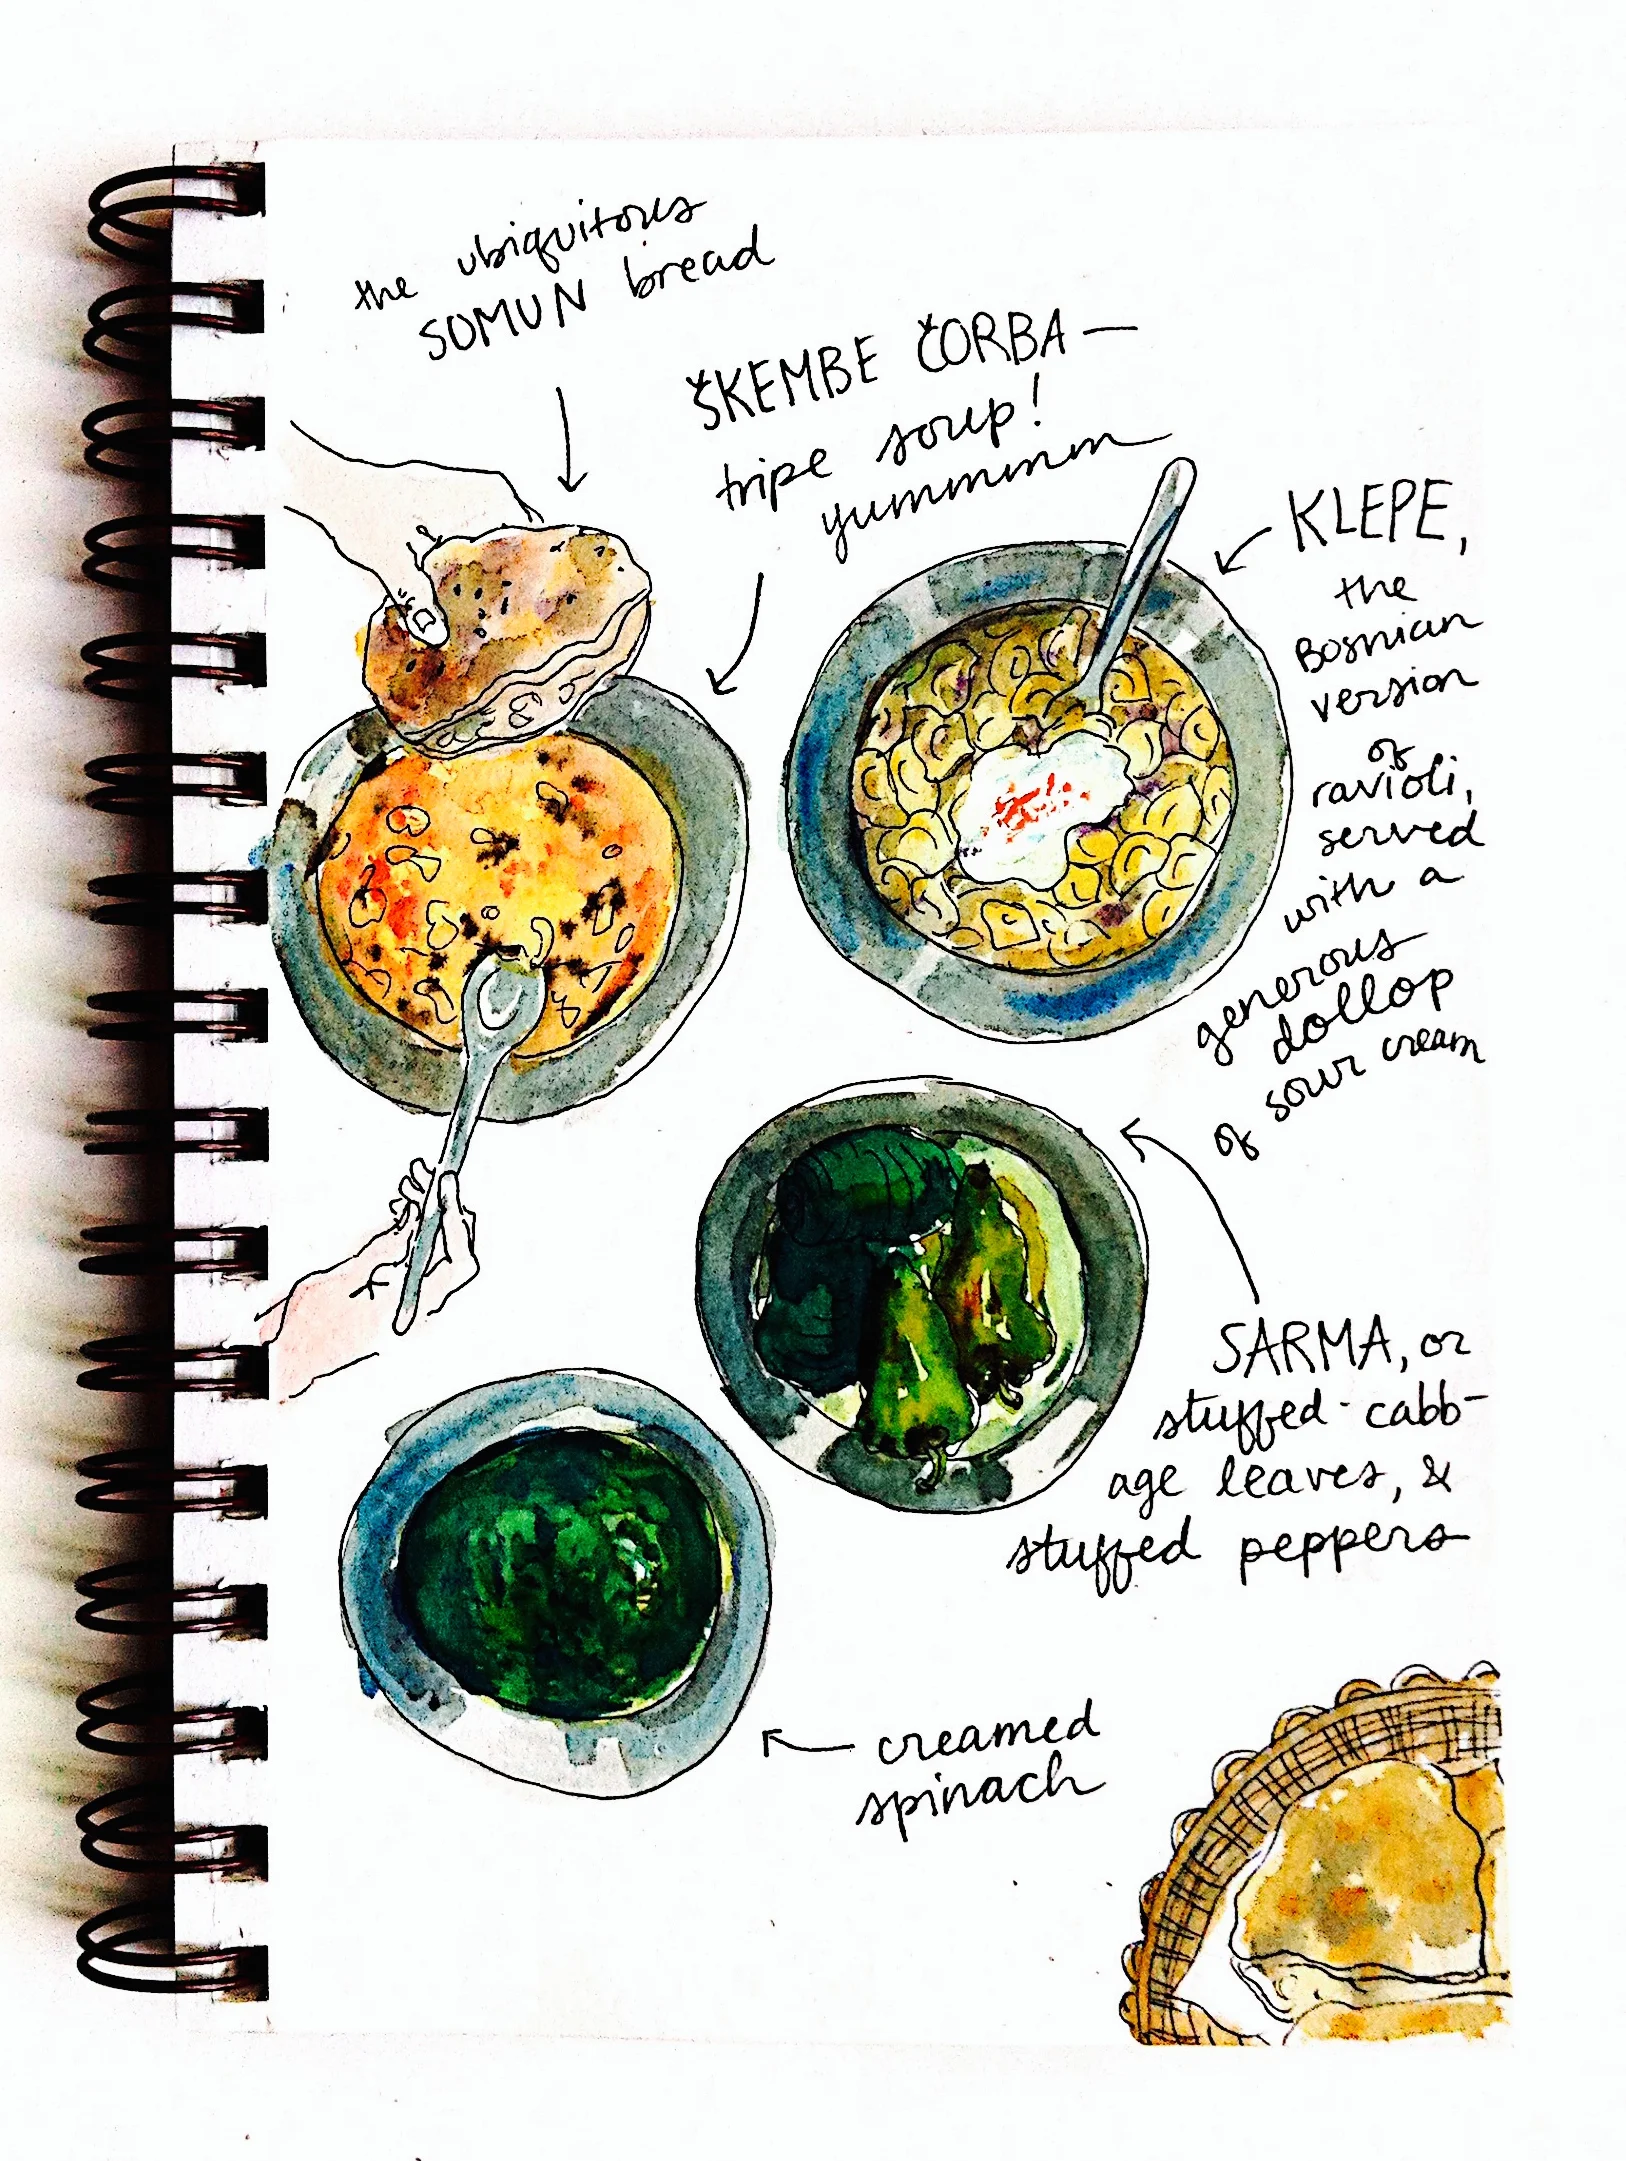 the ubiquitous
SOMUN bread
ŠKEMBE ČORBA —
tripe soup!
yummmm
KLEPE,
the
Bosnian
version
of
ravioli,
served
with a
generous
dollop
of sour cream
SARMA, or
stuffed-cabb-
age leaves, &
stuffed peppers
creamed
spinach